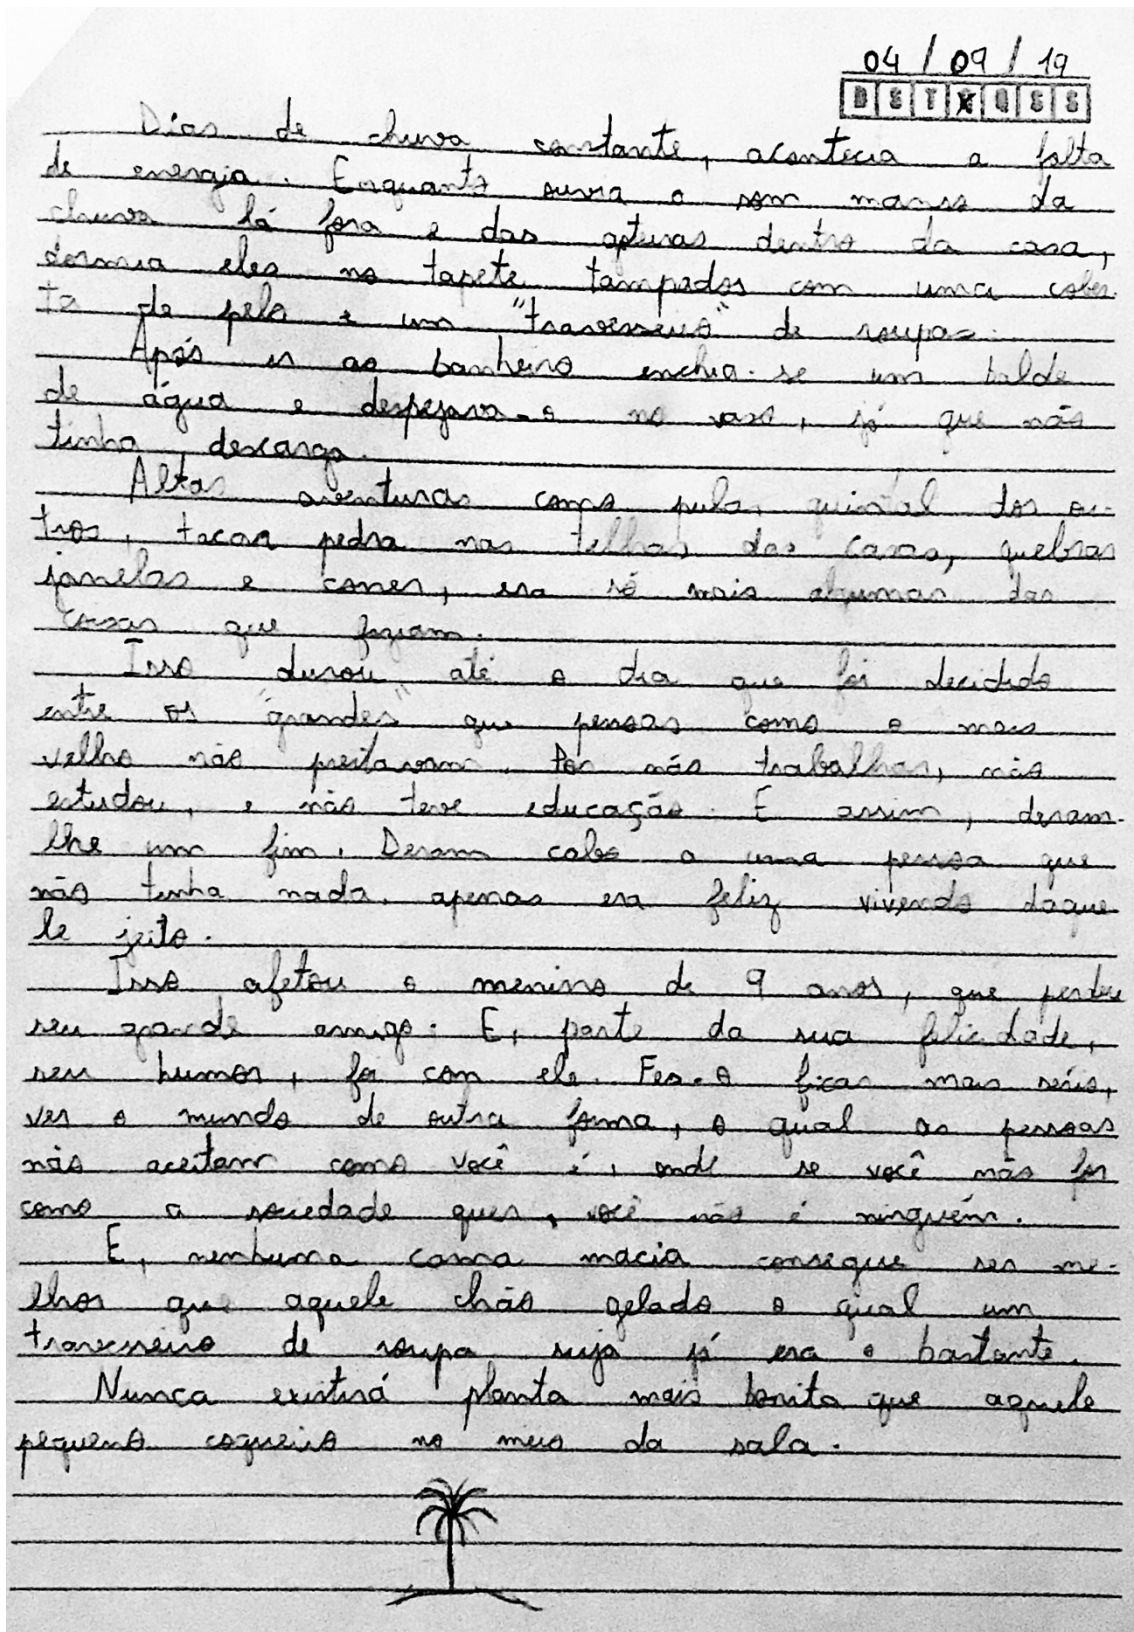 04 / 09 / 19
D S T Q Q S S
Dias de chuva constante, acontecia a falta
de energia. Enquanto ouvia o som manso da
chuva lá fora e das goteiras dentro da casa,
dormia eles no tapete tampados com uma cober-
ta de pelo e um "travesseiro" de roupas.
Após ir ao banheiro enchia-se um balde
de água e despejava-o no vaso, já que não
tinha descarga.
Altas aventuras como pular quintal dos ou-
tros, tacar pedra nas telhas das casas, quebrar
janelas e correr, era só mais algumas das
coisas que faziam.
Isso durou até o dia que foi decidido
entre os "grandes" que pessoas como o mais
velho não prestavam. Por não trabalhar, não
estudou, e não teve educação. E assim, deram-
lhe um fim. Deram cabo a uma pessoa que
não tinha nada, apenas era feliz vivendo daque-
le jeito.
Isso afetou o menino de 9 anos, que perdeu
seu grande amigo. E, parte da sua felicidade,
seu humor, foi com ele. Fez-o ficar mais sério,
ver o mundo de outra forma, o qual as pessoas
não aceitam como você é, onde se você não for
como a sociedade quer, você não é ninguém.
E, nenhuma cama macia consegue ser me-
lhor que aquele chão gelado o qual um
travesseiro de roupa suja já era o bastante.
Nunca existirá planta mais bonita que aquele
pequeno coqueiro no meio da sala.